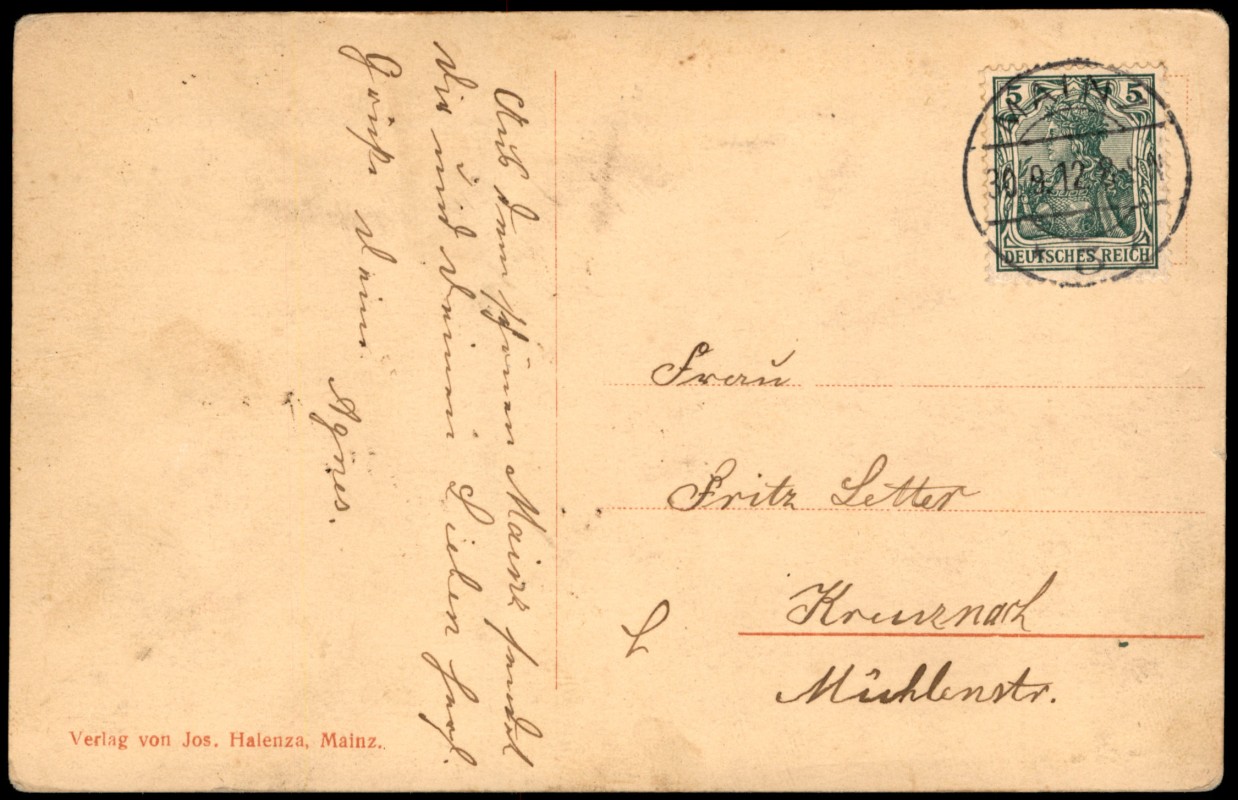 Aus dem schönen Mainz sendet
Dir und Deinen Lieben herzl.
Grüße Deine
Agnes.
MAINZ
30.9.12
5 5
DEUTSCHES REICH
Frau
Fritz Letter
Kreuznach
Mühlenstr.
Verlag von Jos. Halenza, Mainz.